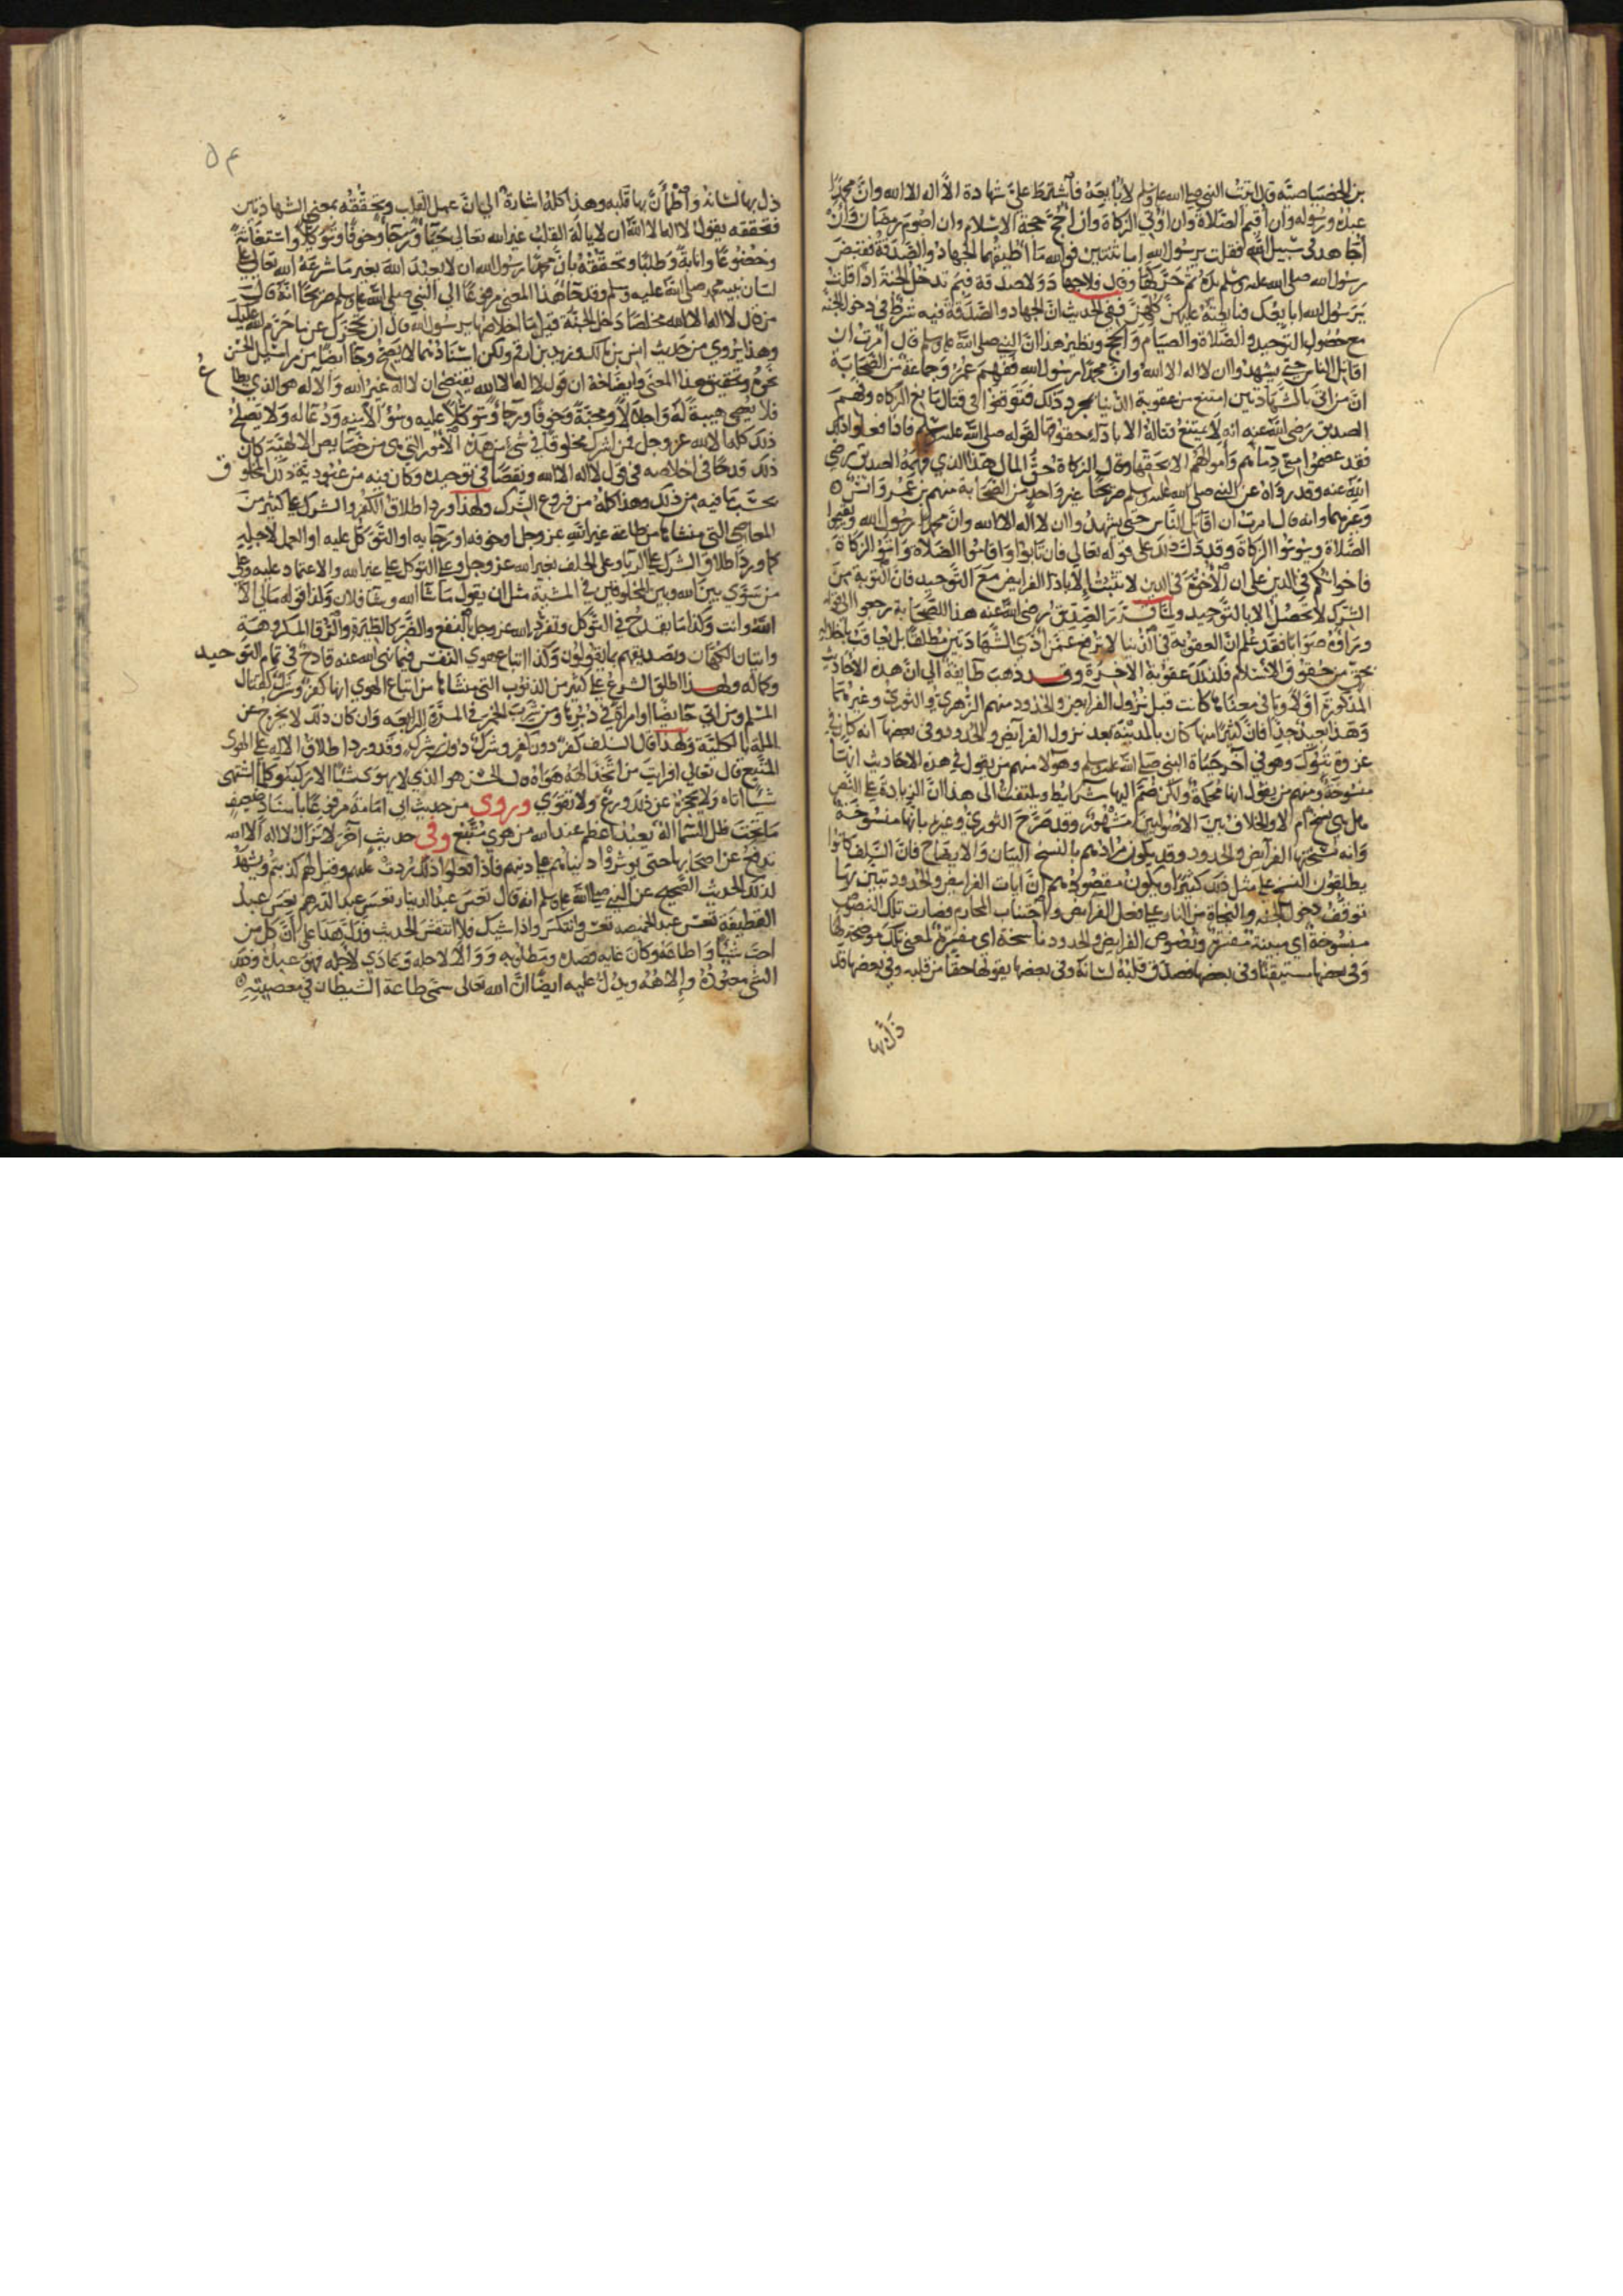 بن الخصاصيّة قال اتيت النبي صلى الله عليه وسلم لأبايعه فاشترط عليّ شهادة الا اله الا الله وانّ محمّدًا
عبده ورسوله وان اقيم الصّلاة وان اوتي الزكاة وان احجّ حجة الاسلام وان اصوم رمضان وان
اجاهد في سبيل الله فقلت يرسول الله اما ثنتين فوالله ما اطيقهما الجهاد والصّدقة فقبض
رسول الله صلى الله عليه وسلم يده ثم حرّكها وقال فلا جهاد ولا صدقة فبم تدخل الجنة اذا قلت
يرسول الله ابايعك فبايعته عليهنّ كلّهنّ ففي الحديث انّ الجهاد والصّدقة فيه شرط في دخول الجنّة
مع حصول التوحيد والصّلاة والصيام والحج ونظير هذا انّ النبي صلى الله عليه وسلم قال امرت ان
اقاتل الناس حتى يشهدوا ان لا اله الا الله وانّ محمّدًا رسول الله ففهم عمر وجماعة من الصّحابة
انّ من اتى بالشهادتين امتنع من عقوبة الدّنيا بمجرد ذلك فتوقفوا في قتال مانع الزكاه وفهم
الصديق رضي الله عنه انه لا يمتنع قتاله الا باداء حقوقها لقوله صلى الله عليه وسلم فاذا فعلوا ذلك
فقد عصموا منّي دماءهم واموالهم الا بحقها وقال الزكاة حقّ المال هذا الذي فهمه الصديق رضي
الله عنه وقد رواه عن النبي صلى الله عليه وسلم صريحًا غير واحد من الصّحابة منهم بن عمر وانس
وغيرهما وانه قال امرت ان اقاتل النّاس حتى يشهدوا ان لا اله الا الله وانّ محمدًا رسول الله ويقيموا
الصّلاة ويوتوا الزكاة وقد دلّ ذلك على قوله تعالى فان تابوا واقاموا الصّلاة واتوا الزكاة
فاخوانكم في الدين على ان الأخوّة في الدين لا تثبت الّا باداء الفرايض مع التّوحيد فانّ التوبة من
الشرك لا تحصل الا بالتّوحيد ولمّا قرّر الصّدّيق رضي الله عنه هذا للصّحابة رجعوا الى قوله
وراوه صوابًا فقد علم انّ العقوبة في الدّنيا لا ترفع عمّن ادّى الشّهادتين مطلقًا بل يعاقب باخلاله
بحقّ من حقوق الاسلام فكذلك عقوبة الآخرة وقد ذهب طايفة الى انّ هذه الأحاديث
المذكورة اوّلًا وما في معناها كانت قبل نزول الفرايض والحدود منهم الزّهري والثوريّ وغيرهما
وهذا بعيد جدّا فانّ كثيرًا منها كان بالمدينة بعد نزول الفرآيض والحدود وفي بعضها انه كان في
غزوة تبوك وهو في آخر حياة النبي صلى الله عليه وسلم وهولا منهم من يقول في هذه الاحاديث انها
منسوخة ومنهم من يقول انها محكمة ولكن ضمّ اليها شرايط ويلتفت الى هذا انّ الزيادة على النّص
هل هي نسخ ام لا والخلاف بين الأصوليين مشهور وقد صرّح الثوريّ وغيره بانّها منسوخة
وانه نسختها الفرايض والحدود وقد يكون مرادهم بالنسخ البيان والايضاح فانّ السّلف كانوا
يطلقون النسخ على مثل ذلك كثيرًا ويكون مقصودهم انّ ايات الفرايض والحدود تبيّن بها
توقّف دخول الجنه والنجاة من النار على فعل الفرايض واجتناب المحارم فصارت تلك النصوص
منسوخة اي مبينة مفسّرة ونصوص الفرايض والحدود ناسخة اي مفسّرة لمعنى تلك موضحة لها
وفي بعضها مستيقنًا وفي بعضها فصدّق قلبه لسانه وفي بعضها يقولها حقّا من قلبه وفي بعضها قد
ذلّ بها
٥٤
ذل بها لسانه واطمأنّ بها قلبه وهذا كلّه اشارة الى انّ عمل القلب وتحقّقه بمعنى الشهادتين
فتحققه بقول لا اله الا الله ان لا يالَه القلب غير الله تعالى حبّا ورجاءً وخوفًا وتوكّلًا واستعانة
وخضوعًا وانابة وطلبًا وتحقّقه بانّ محمّدًا رسول الله ان لا يعبد الله بغير ما شرعه الله تعالى على
لسان نبيه محمّد صلى الله عليه وسلم وقد جاء هذا المعنى مرفوعًا الى النبي صلى الله عليه وسلم صريحًا انّه قال
من قال لا اله الا الله مخلصًا دخل الجنّة قيل ما اخلاصها يرسول الله قال ان تحجزك عن ما حرّم الله عليك
وهذا يروى من حديث انس بن مالك وزيد بن ارقم ولكن اسنادهما لا يصحّ وجا ايضًا من مراسيل الحسن
نحوه وتحقيق هذا المعنى وايضاحه ان قول لا اله الا الله يقتضي ان لا اله غير الله والاله هو الذي يطاع
فلا يعصى هيبةً له واجلالًا ومحبّةً وخوفًا ورجاءً وتوكّلًا عليه وسؤالًا منه ودعاله ولا يصلح
ذلك كله الا لله عز وجل فمن اشرك مخلوقًا في شيء من هذه الأمور التي هي من خصايص الالهيّة كان
ذلك قدحًا في اخلاصه في قول لا اله الا الله ونقصًا في توحيده وكان فيه من عبوديّة ذلك المخلوق
بحسب ما فيه من ذلك وهذا كله من فروع الشّرك ولهذا ورد اطلاق الكفر والشرك على كثير من
المعاصي التي منشاها من طاعة غير الله عز وجل او خوفه او رجايه او التوكّل عليه او العمل لاجله
كما ورد اطلاق الشرك على الريا وعلى الحلف بغير الله عز وجل وعلى التوكل على غير الله والاعتماد عليه وعلى
من سوّى بين الله وبين المخلوقين في المشيّة مثل ان يقول ما شا الله وشا فلان وكذا قوله مالي الّا
الله وانت وكذا ما يقدح في التوكل وتفرّد الله عز وجل بالنفع والضّر كالطّيرة والرّقى المكروهة
واتيان الكهّان وتصديقهم بما يقولون وكذا اتباع هوى النفس فيما نهى الله عنه قادح في تمام التوحيد
وكماله ولهذا اطلق الشرع على كثير من الذنوب التي منشاها من اتباع الهوى انها كفر وشرك كقتال
المسلم ومن اتى حايضًا او امراة في دبرها ومن شرب الخمر في المرّة الرابعه وان كان ذلك لا يخرج عن
الملة بالكليّة ولهذا قال السلف كفر دون كفر وشرك دون شرك وقد ورد اطلاق الاله على الهوى
المتّبع قال تعالى افرايت من اتّخذ الهه هواه قال الحسن هو الذي لا يهوى شيئًا الا ركبه وكلّما اشتهى
شيئًا اتاه ولا يحجزه عن ذلك ورع ولا تقوى وروى من حديث ابي امامة مرفوعًا باسناد ضعيف
ما تحت ظل السّما اله يعبد اعظم عند الله من هوى متّبع وفي حديث آخر لا تزال لا اله الا الله
تدفع عن اصحابها حتى يوثروا دنياهم على دينهم فاذا فعلوا ذلك ردت عليهم وقيل لهم كذبتم ويشهد
لذلك الحديث الصّحيح عن النبي صلى الله عليه وسلم انه قال تعس عبد الدينار تعس عبد الدرهم تعس عبد
القطيفة تعس عبد الخميصه تعس وانتكس واذا شيك فلا انتقش الحديث فدلّ هذا على انّ كل من
احبّ شيئًا واطاعه وكان غاية قصده ومطلوبه ووالا لاجله وعادى لاجله فهو عبده وذلك
الشي معبوده والاهه ويدل عليه ايضًا انّ الله تعالى سمّى طاعة الشيطان في معصيته